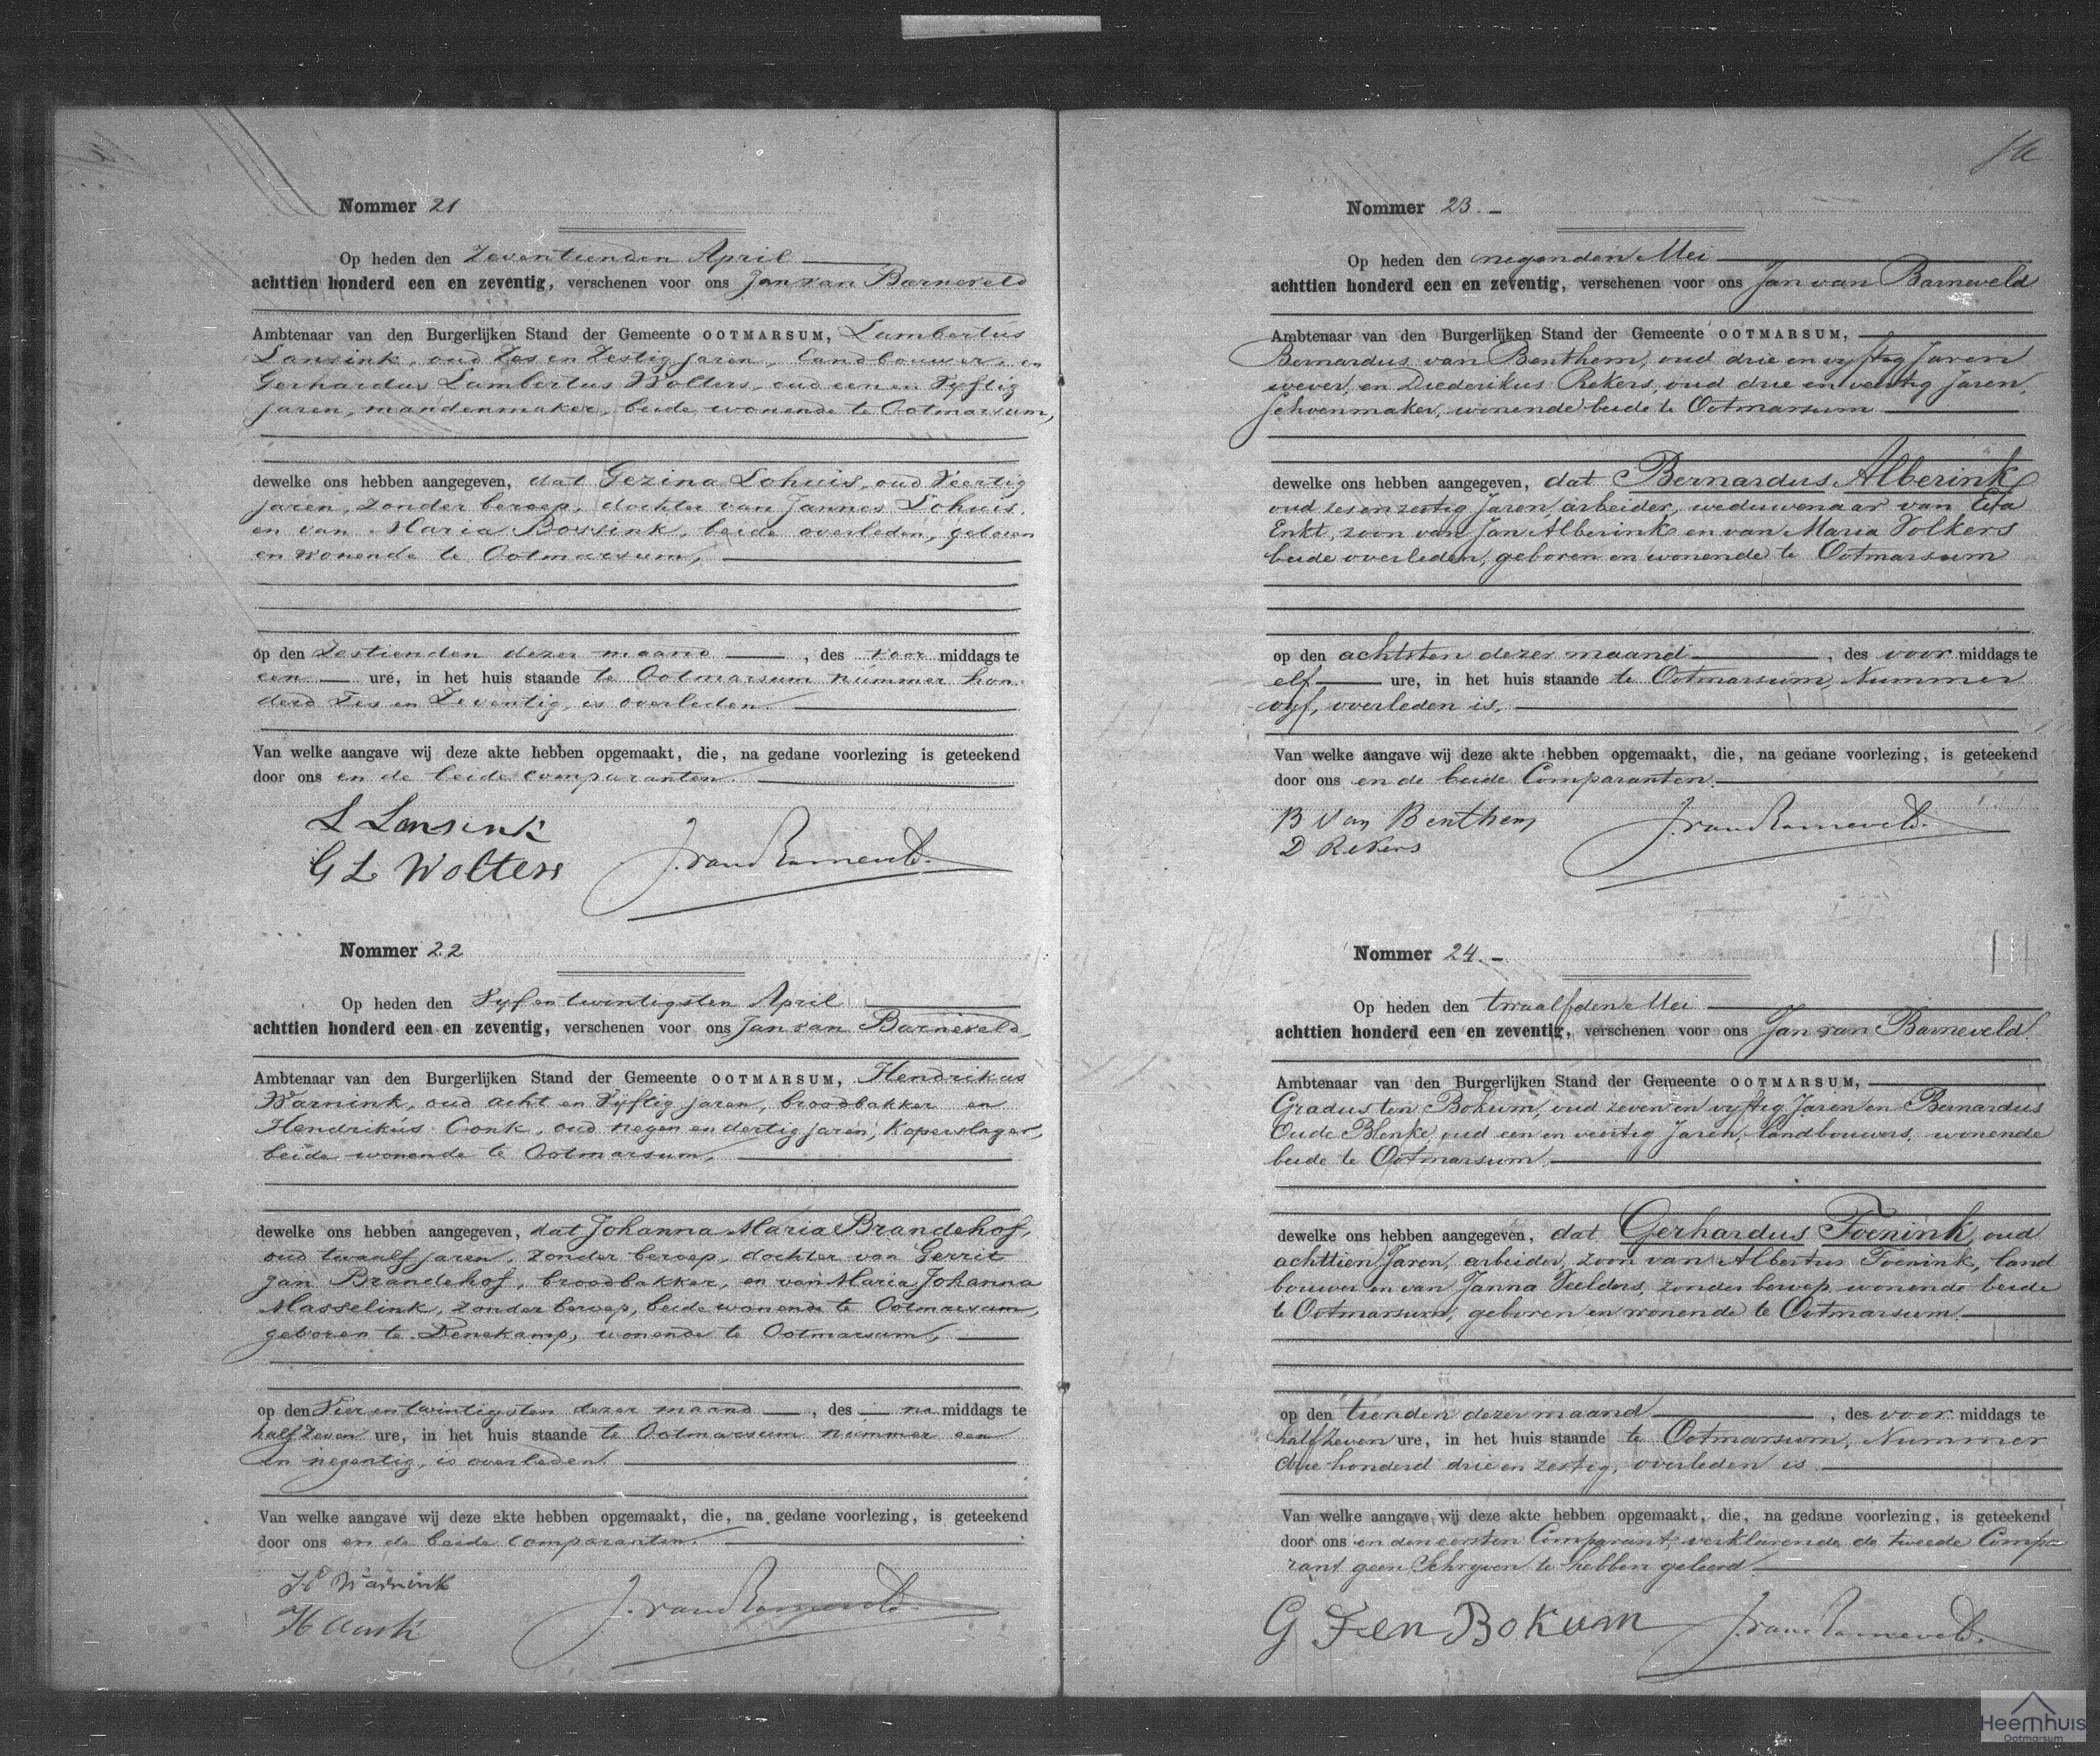 Nommer 21
Op heden den Zeventienden April
achttien honderd een en zeventig, verschenen voor ons Jan van Barneveld
Ambtenaar van den Burgerlijken Stand der Gemeente OOTMARSUM, Lambertus
Lansink, oud Zes en Zestig jaren, landbouwer, en
Gerhardus Lambertus Wolters, oud een en Vyftig
jaren, mandenmaker, beide wonende te Ootmarsum,
dewelke ons hebben aangegeven, dat Gezina Lohuis, oud Veertig
jaren, zonder beroep, dochter van Jannes Lohuis
en van Maria Bossink, beide overleden, geboren
en wonende te Ootmarsum,
op den Zestienden dezer maand, des voor middags te
een ure, in het huis staande te Ootmarsum nummer hon
derd Zes en Zeventig, is overleden.
Van welke aangave wij deze akte hebben opgemaakt, die, na gedane voorlezing is geteekend
door ons en de beide comparanten.
L Lansink
G L Wolters
J. van Barneveld.
Nommer 22
Op heden den Vyf en twintigsten April
achttien honderd een en zeventig, verschenen voor ons Jan van Barneveld,
Ambtenaar van den Burgerlijken Stand der Gemeente OOTMARSUM, Hendrikus
Warnink, oud acht en Vyftig jaren, broodbakker en
Hendrikus Conk, oud negen en dertig jaren, Koperslager,
beide wonende te Ootmarsum,
dewelke ons hebben aangegeven, dat Johanna Maria Brandehof,
oud twaalf jaren, zonder beroep, dochter van Gerrit
Jan Brandehof, broodbakker, en van Maria Johanna
Masselink, zonder beroep, beide wonende te Ootmarsum,
geboren te Denekamp, wonende te Ootmarsum,
op den Vier en twintigsten dezer maand, des na middags te
half Zeven ure, in het huis staande te Ootmarsum nummer een
en negentig, is overleden.
Van welke aangave wij deze akte hebben opgemaakt, die, na gedane voorlezing, is geteekend
door ons en de beide comparanten.
H Warnink
J. van Barneveld.
Nommer 23.
Op heden den negenden Mei
achttien honderd een en zeventig, verschenen voor ons Jan van Barneveld
Ambtenaar van den Burgerlijken Stand der Gemeente OOTMARSUM,
Bernardus van Benthem, oud drie en vyftig Jaren
wever, en Diederikus Rekers, oud drie en veertig Jaren,
Schoenmaker, wonende beide te Ootmarsum
dewelke ons hebben aangegeven, dat Bernardus Alberink
oud zes en zestig Jaren, arbeider, weduwenaar van
Enkt, zoon van Jan Alberink en van Maria Volkers
beide overleden, geboren en wonende te Ootmarsum
op den achtsten dezer maand, des voor middags te
elf ure, in het huis staande te Ootmarsum, Nummer
vyf, overleden is,
Van welke aangave wij deze akte hebben opgemaakt, die, na gedane voorlezing, is geteekend
door ons en de beide Comparanten.
B Van Benthem
D Rekers
J. van Barneveld.
Nommer 24.
Op heden den twaalfden Mei
achttien honderd een en zeventig, verschenen voor ons Jan van Barneveld.
Ambtenaar van den Burgerlijken Stand der Gemeente OOTMARSUM,
Gradus ten Bokum, oud zeven en vyftig Jaren en Bernardus
Oude Blenke, oud een en veertig Jaren, landbouwers, wonende
beide te Ootmarsum.
dewelke ons hebben aangegeven, dat Gerhardus Foenink, oud
achttien Jaren, arbeider, zoon van Albertus Foenink, land
bouwer en van Janna Veelders, zonder beroep, wonende beide
te Ootmarsum, geboren en wonende te Ootmarsum.
op den tienden dezer maand, des voor middags te
half zeven ure, in het huis staande te Ootmarsum, Nummer
honderd drie en zestig, overleden is
Van welke aangave wij deze akte hebben opgemaakt, die, na gedane voorlezing, is geteekend
door ons en den eersten Comparant, verklarende de tweede Compa
rant geen Schryven te hebben geleerd
G Ten Bokum
J. van Barneveld.
Heemhuis
Ootmarsum